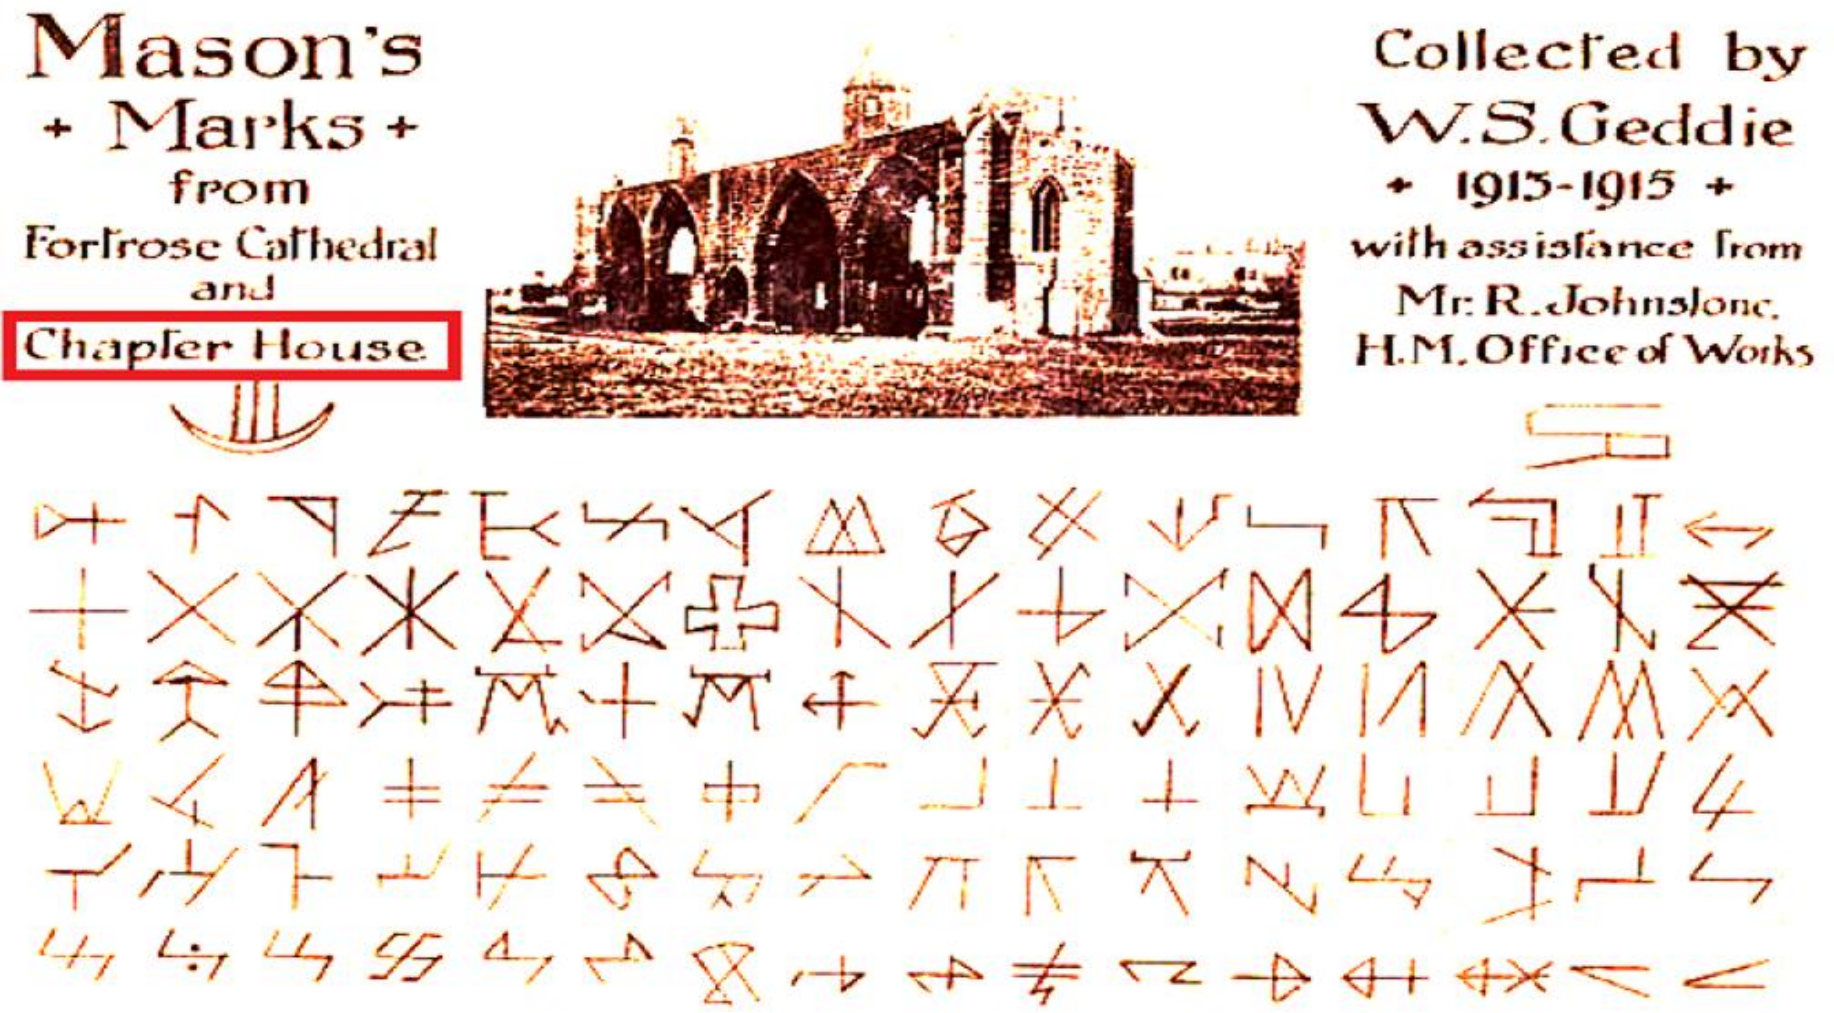 Mason's
+ Marks +
from
Fortrose Cathedral
and
Chapter House
Collected by
W.S. Geddie
+ 1913-1915 +
with assistance from
Mr. R. Johnstone.
H.M. Office of Works